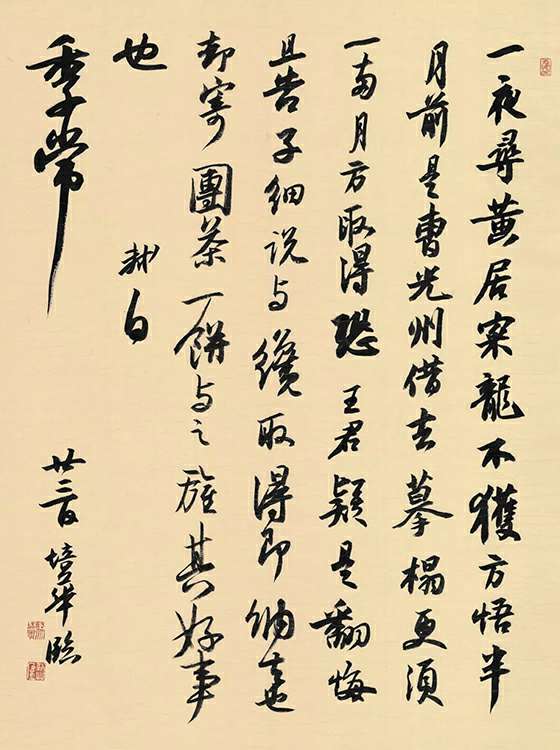 一夜尋黄居寀龍不獲方悟半
月前是曹光州借去摹榻更須
一兩月方取得恐王君疑是翻悔
且告子細說与纔取得即納去也
却寄團茶一餅与之旌其好事
也
軾白
季常
廿三日培华臨